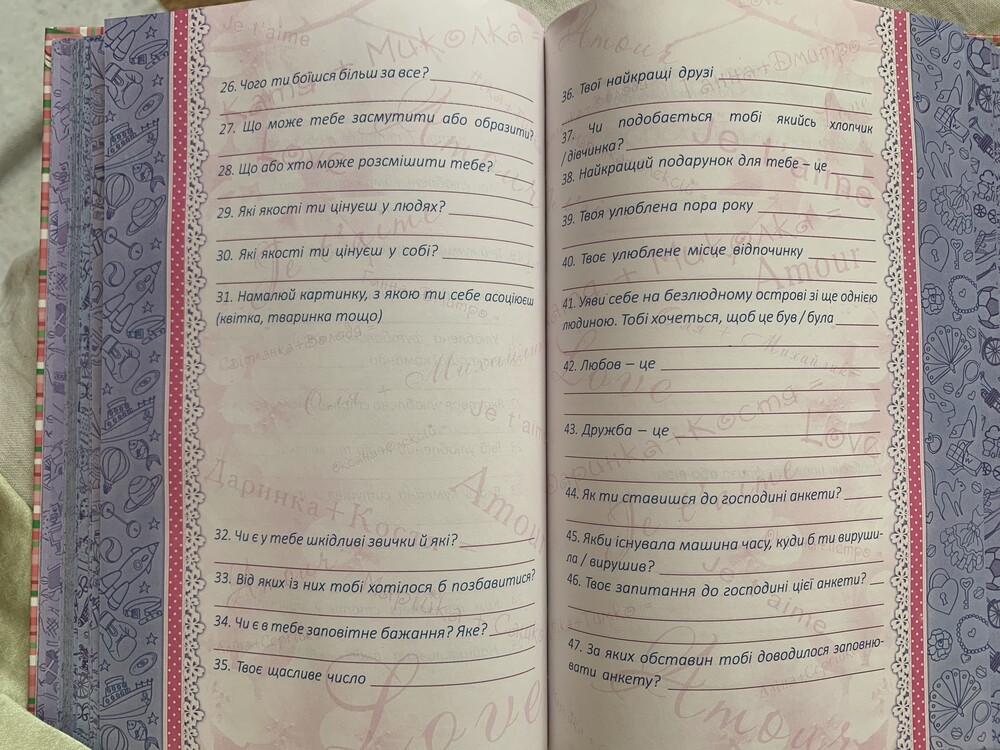 26. Чого ти боїшся більш за все?
27. Що може тебе засмутити або образити?
28. Що або хто може розсмішити тебе?
29. Які якості ти цінуєш у людях?
30. Які якості ти цінуєш у собі?
31. Намалюй картинку, з якою ти себе асоціюєш
(квітка, тваринка тощо)
32. Чи є у тебе шкідливі звички й які?
33. Від яких із них тобі хотілося б позбавитися?
34. Чи є в тебе заповітне бажання? Яке?
35. Твоє щасливе число
36. Твої найкращі друзі
37. Чи подобається тобі якийсь хлопчик
/ дівчинка?
38. Найкращий подарунок для тебе – це
39. Твоя улюблена пора року
40. Твоє улюблене місце відпочинку
41. Уяви себе на безлюдному острові зі ще однією
людиною. Тобі хочеться, щоб це був / була
42. Любов – це
43. Дружба – це
44. Як ти ставишся до господині анкети?
45. Якби існувала машина часу, куди б ти вируши-
ла / вирушив?
46. Твоє запитання до господині цієї анкети?
47. За яких обставин тобі доводилося заповню-
вати анкету?
Je t'aime
Миколка =
Love
Оля + Михай
Je t'aim
Даринка+Кость
Amour
Love
Amour
Ганна+Дмитро
Je t'aime
Amour
Love
Love
Amour